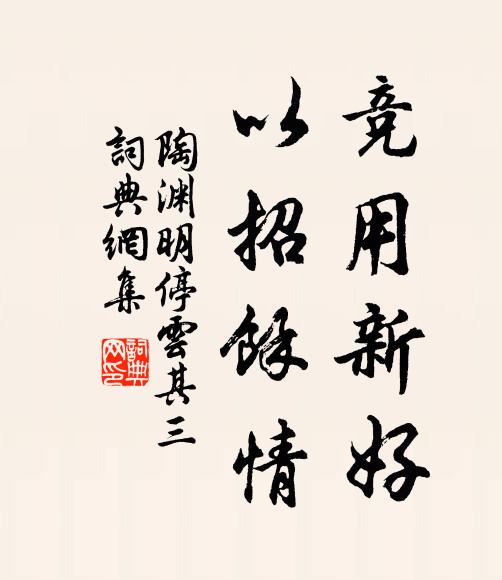 竞用新好
以招餘情
陶渊明停雲其三
詞典網集
詞典
网印